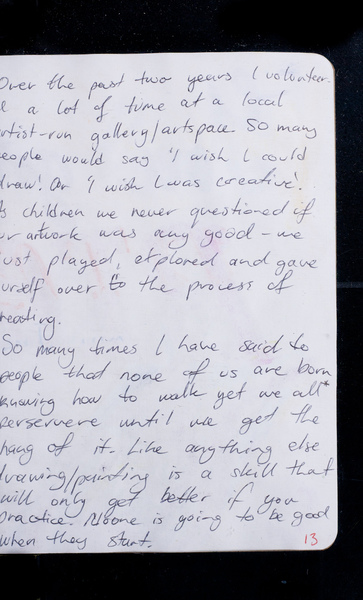 Over the past two years I volunteer-
a lot of time at a local
artist-run gallery/artspace. So many
people would say 'I wish I could
draw'. Or 'I wish I was creative'.
As children we never questioned if
our artwork was any good - we
just played, explored and gave
ourself over to the process of
creating.
So many times I have said to
people that none of us are born
knowing how to walk yet we all
perservere until we get the
hang of it. Like anything else
drawing/painting is a skill that
will only get better if you
practice. Noone is going to be good
when they start.
13